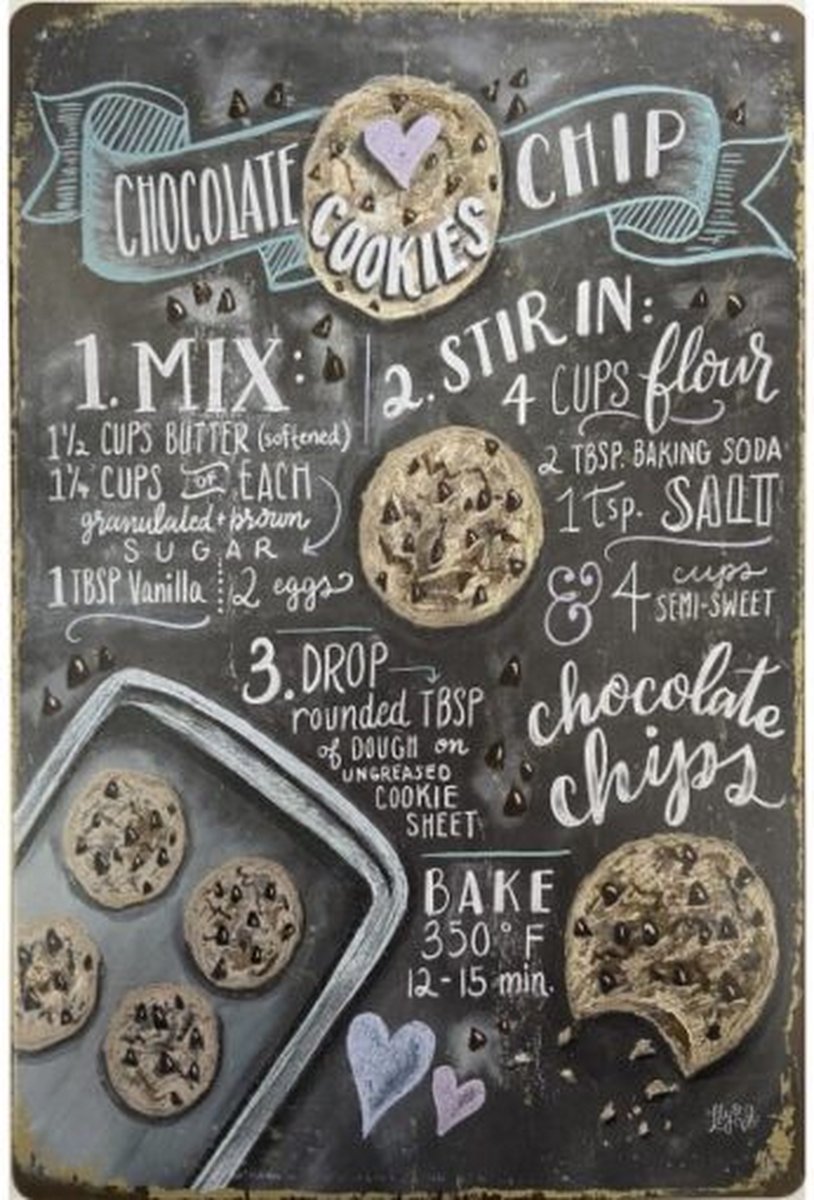 CHOCOLATE CHIP
COOKIES
1. MIX:
1 1/2 CUPS BUTTER (softened)
1 1/4 CUPS OF EACH
granulated + brown
SUGAR
1 TBSP Vanilla 2 eggs
2. STIR IN:
4 CUPS flour
2 TBSP. BAKING SODA
1 Tsp. SALT
& 4 cups
SEMI-SWEET
chocolate
chips
3. DROP
rounded TBSP
of DOUGH on
UNGREASED
COOKIE
SHEET
BAKE
350° F
12-15 min.